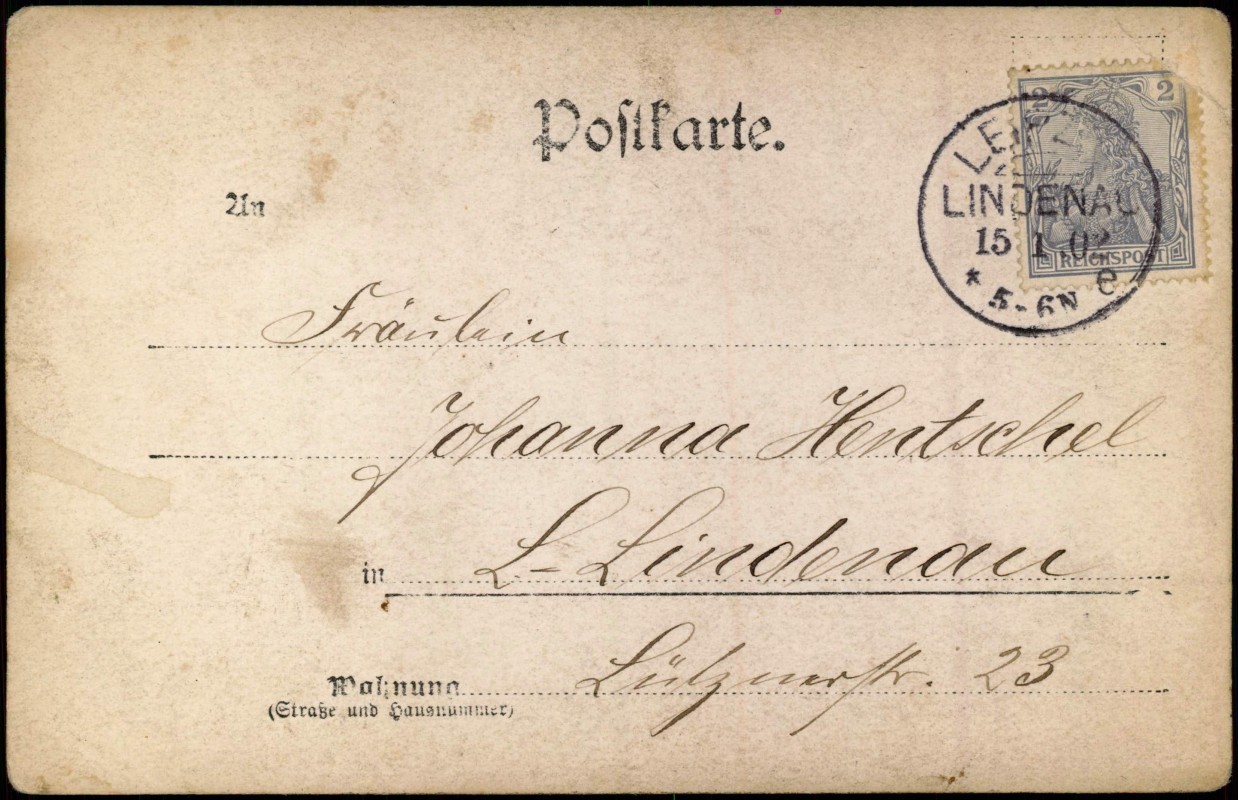 Postkarte.
2 2
REICHSPOST
LINDENAU
15 1 02
* 5-6N e
An
Fräulein
Johanna Hentschel
in L-Lindenau
Lütznerstr. 23
Wohnung
(Straße und Hausnummer)